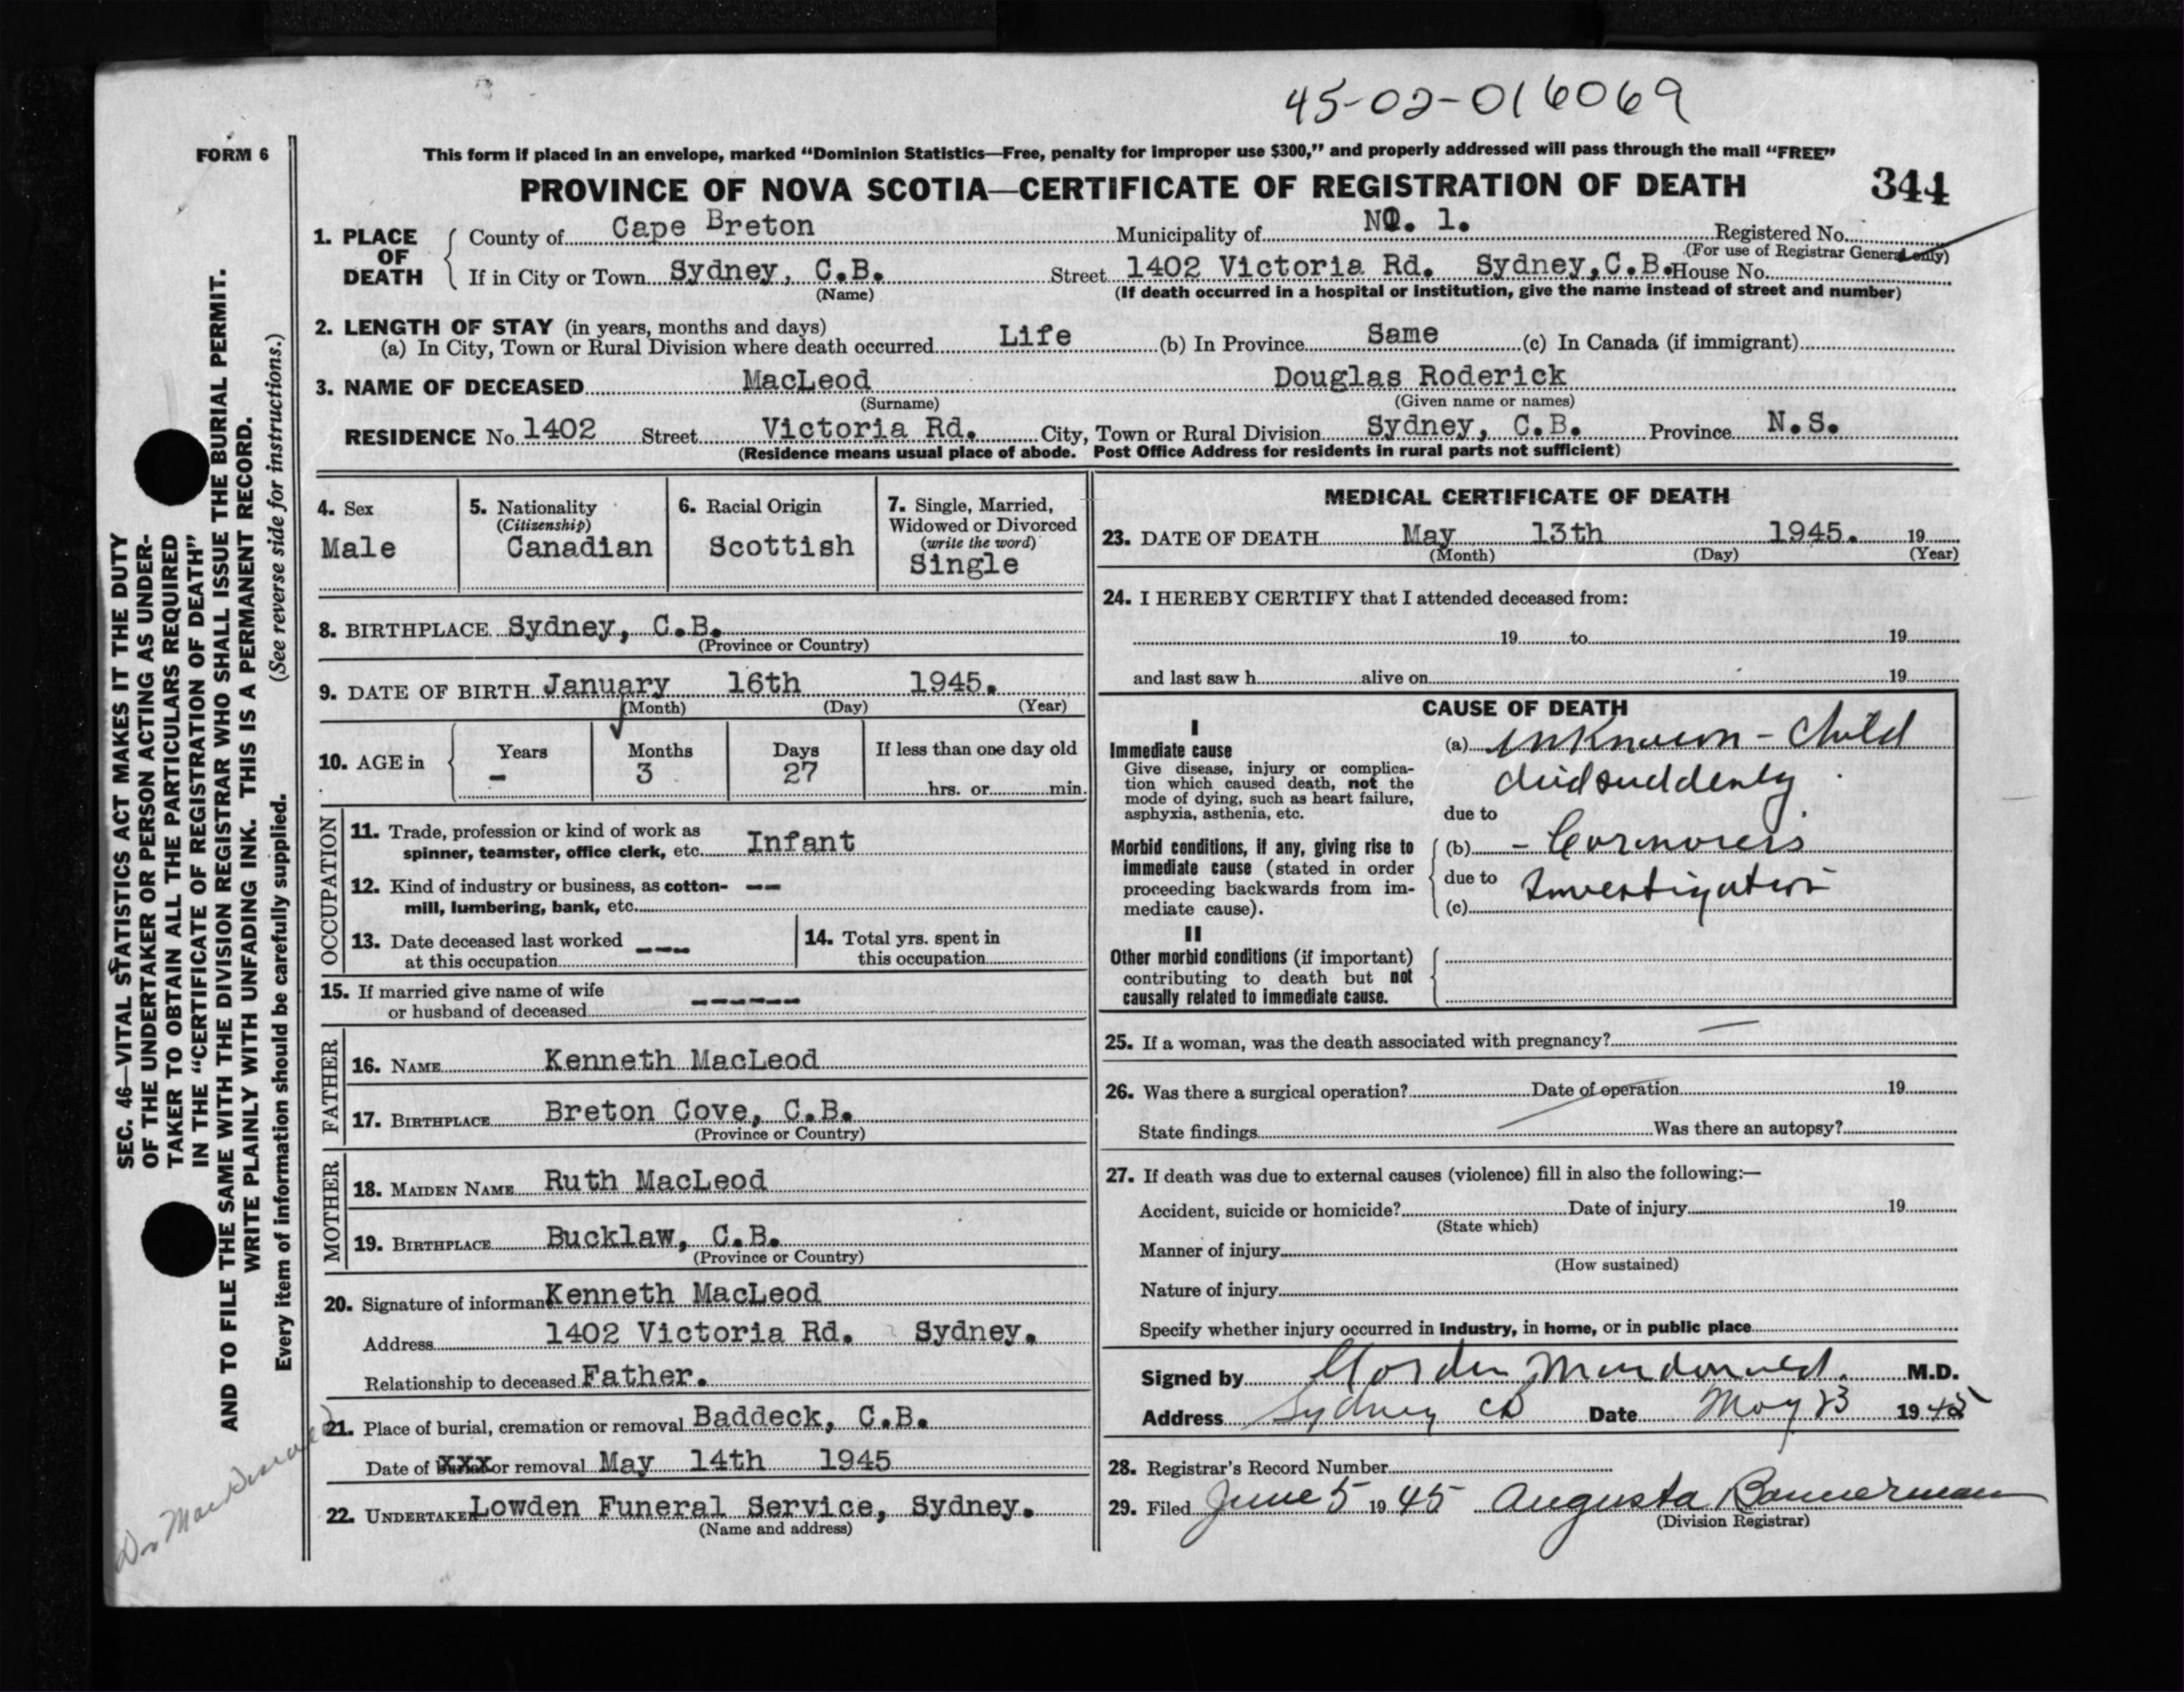 45-02-016069
FORM 6
This form if placed in an envelope, marked "Dominion Statistics—Free, penalty for improper use $300," and properly addressed will pass through the mail "FREE"
PROVINCE OF NOVA SCOTIA—CERTIFICATE OF REGISTRATION OF DEATH 344
1. PLACE OF DEATH
County of Cape Breton Municipality of NO. 1. Registered No.
(For use of Registrar General only)
If in City or Town Sydney, C.B. Street 1402 Victoria Rd. Sydney, C.B. House No.
(Name) (If death occurred in a hospital or institution, give the name instead of street and number)
2. LENGTH OF STAY (in years, months and days)
(a) In City, Town or Rural Division where death occurred Life (b) In Province Same (c) In Canada (if immigrant)
3. NAME OF DECEASED MacLeod Douglas Roderick
(Surname) (Given name or names)
RESIDENCE No. 1402 Street Victoria Rd. City, Town or Rural Division Sydney, C.B. Province N.S.
(Residence means usual place of abode. Post Office Address for residents in rural parts not sufficient)
4. Sex
Male
5. Nationality
(Citizenship)
Canadian
6. Racial Origin
Scottish
7. Single, Married,
Widowed or Divorced
(write the word)
Single
8. BIRTHPLACE Sydney, C.B.
(Province or Country)
9. DATE OF BIRTH January 16th 1945.
(Month) (Day) (Year)
10. AGE in
Years Months Days If less than one day old
- 3 27
hrs. or min.
OCCUPATION
11. Trade, profession or kind of work as
spinner, teamster, office clerk, etc. Infant
12. Kind of industry or business, as cotton- --
mill, lumbering, bank, etc.
13. Date deceased last worked ---
at this occupation
14. Total yrs. spent in
this occupation
15. If married give name of wife ------
or husband of deceased
FATHER
16. NAME Kenneth MacLeod
17. BIRTHPLACE Breton Cove, C.B.
(Province or Country)
MOTHER
18. MAIDEN NAME Ruth MacLeod
19. BIRTHPLACE Bucklaw, C.B.
(Province or Country)
20. Signature of informant Kenneth MacLeod
Address 1402 Victoria Rd. Sydney.
Relationship to deceased Father.
21. Place of burial, cremation or removal Baddeck, C.B.
Date of XXX or removal May 14th 1945
22. UNDERTAKER Lowden Funeral Service, Sydney.
(Name and address)
MEDICAL CERTIFICATE OF DEATH
23. DATE OF DEATH May 13th 1945. 19
(Month) (Day) (Year)
24. I HEREBY CERTIFY that I attended deceased from:
19 to 19
and last saw h alive on 19
CAUSE OF DEATH
I
Immediate cause
Give disease, injury or complica-
tion which caused death, not the
mode of dying, such as heart failure,
asphyxia, asthenia, etc.
(a) unknown - child
died suddenly
due to
Morbid conditions, if any, giving rise to
immediate cause (stated in order
proceeding backwards from im-
mediate cause).
(b) - Coronors
due to Investigation
(c)
II
Other morbid conditions (if important)
contributing to death but not
causally related to immediate cause.
25. If a woman, was the death associated with pregnancy? —
26. Was there a surgical operation? Date of operation 19
State findings Was there an autopsy?
27. If death was due to external causes (violence) fill in also the following:—
Accident, suicide or homicide? Date of injury 19
(State which)
Manner of injury
(How sustained)
Nature of injury
Specify whether injury occurred in industry, in home, or in public place
Signed by Gordon Macdonald. M.D.
Address Sydney CB Date May 23 1945
28. Registrar's Record Number
29. Filed June 5 1945 Augusta Bannerman
(Division Registrar)
SEC. 46—VITAL STATISTICS ACT MAKES IT THE DUTY
OF THE UNDERTAKER OR PERSON ACTING AS UNDER-
TAKER TO OBTAIN ALL THE PARTICULARS REQUIRED
IN THE "CERTIFICATE OF REGISTRATION OF DEATH"
AND TO FILE THE SAME WITH THE DIVISION REGISTRAR WHO SHALL ISSUE THE BURIAL PERMIT.
WRITE PLAINLY WITH UNFADING INK. THIS IS A PERMANENT RECORD.
Every item of information should be carefully supplied. (See reverse side for instructions.)
Dr MacDonald